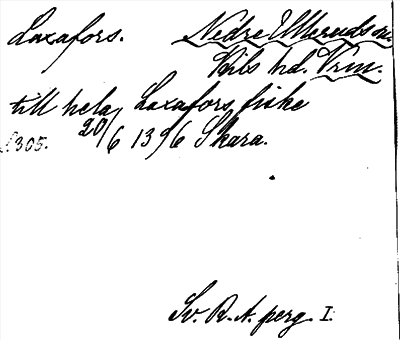 Laxafors. Nedre Ullerud sn.
Kils hd. Vrm.
till hela Laxafors fiske
305. 20/6 1396 Skara.
Sv. R. A. perg. I.